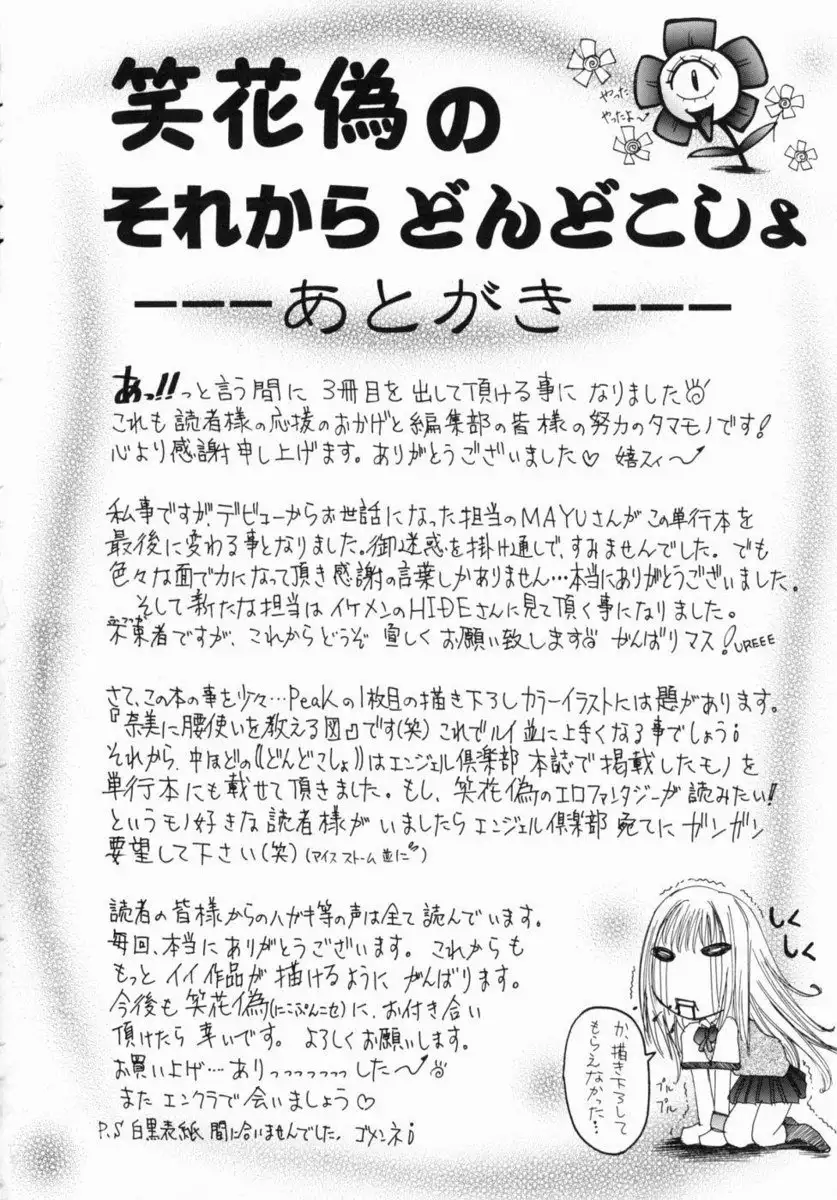 笑花偽の
それからどんどこしょ
やった
やったよ〜
---あとがき---
あっ!!っと言う間に 3冊目を出して頂ける事に なりました
これも読者様の応援のおかげと編集部の皆様の努力のタマモノです!
心より感謝申し上げます。ありがとうございました♡ 嬉スィ〜
私事ですが、デビューからお世話になった担当のMAYUさんがこの単行本を
最後に変わる事となりました。御迷惑を掛け通しで、すみませんでした。でも
色々な面で力になって頂き感謝の言葉しかありません…本当にありがとうございました。
そして新たな担当はイケメンのHIDEさんに見て頂く事になりました。
不束者ですが、これからどうぞ宜しくお願い致します がんばりマス!UREEE
さて、この本の事を少々…Peakの1枚目の描き下ろしカラーイラストには題があります。
『奈美に腰使いを教える図』です(笑)これでルイ並に上手くなる事でしょう!
それから、中ほどの《どんどこしょ》はエンジェル倶楽部本誌で掲載したモノを
単行本にも載せて頂きました。もし、笑花偽のエロファンタジーが読みたい!
というモノ好きな読者様がいましたらエンジェル倶楽部宛てにガンガン
要望して下さい(笑)(アイスストーム並に)
読者の皆様からのハガキ等の声は全て読んでいます。
毎回、本当にありがとうございます。これからも
もっとイイ作品が描けるようにがんばります。
今後も笑花偽(にこぷんニセ)に、お付き合い
頂けたら幸いです。よろしくお願いします。
お買い上げ…ありっっっっっっした〜
またエンクラで会いましょう♡
P.S 白黒表紙間に合いませんでした。ゴメンネ!
しく
しく
か、描き下ろして
もらえなかった…
プル
プル